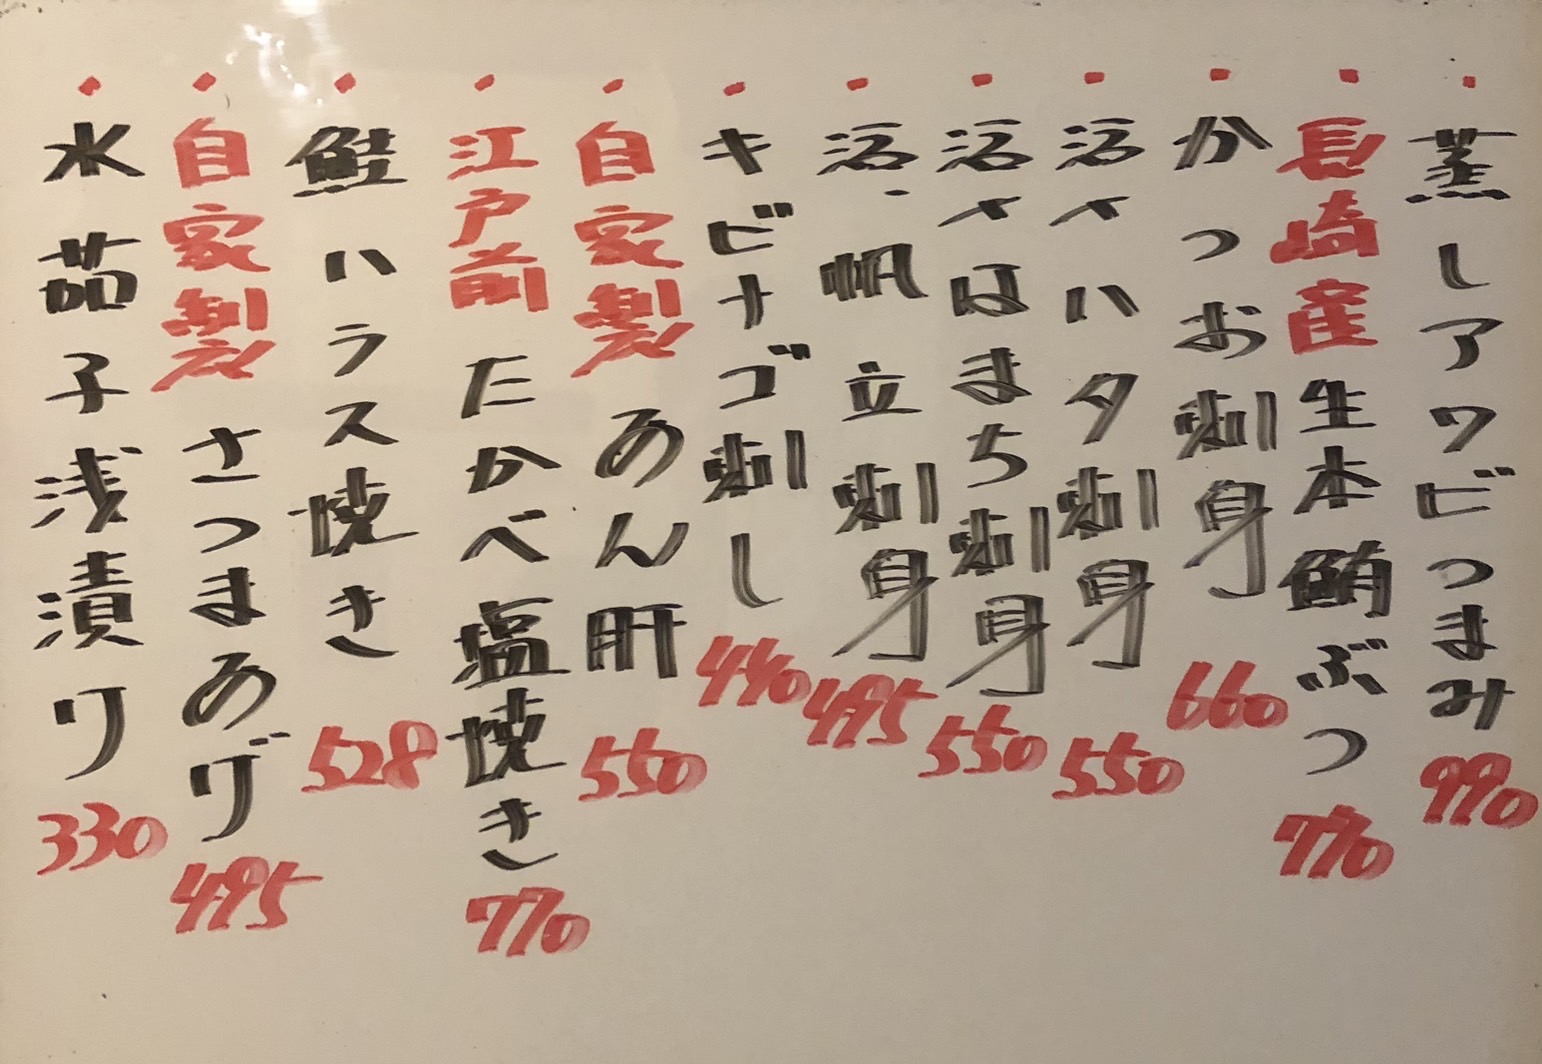 蒸しアワビつまみ 990
長崎産 生本鮪ぶつ 770
かつお刺身 660
活〆ハタ刺身 550
活〆はまち刺身 550
活・帆立刺身 495
キビナゴ刺し 440
自家製 あん肝 550
江戸前 たかべ塩焼き 770
鮭ハラス焼き 528
自家製 さつまあげ 495
水茄子浅漬り 330